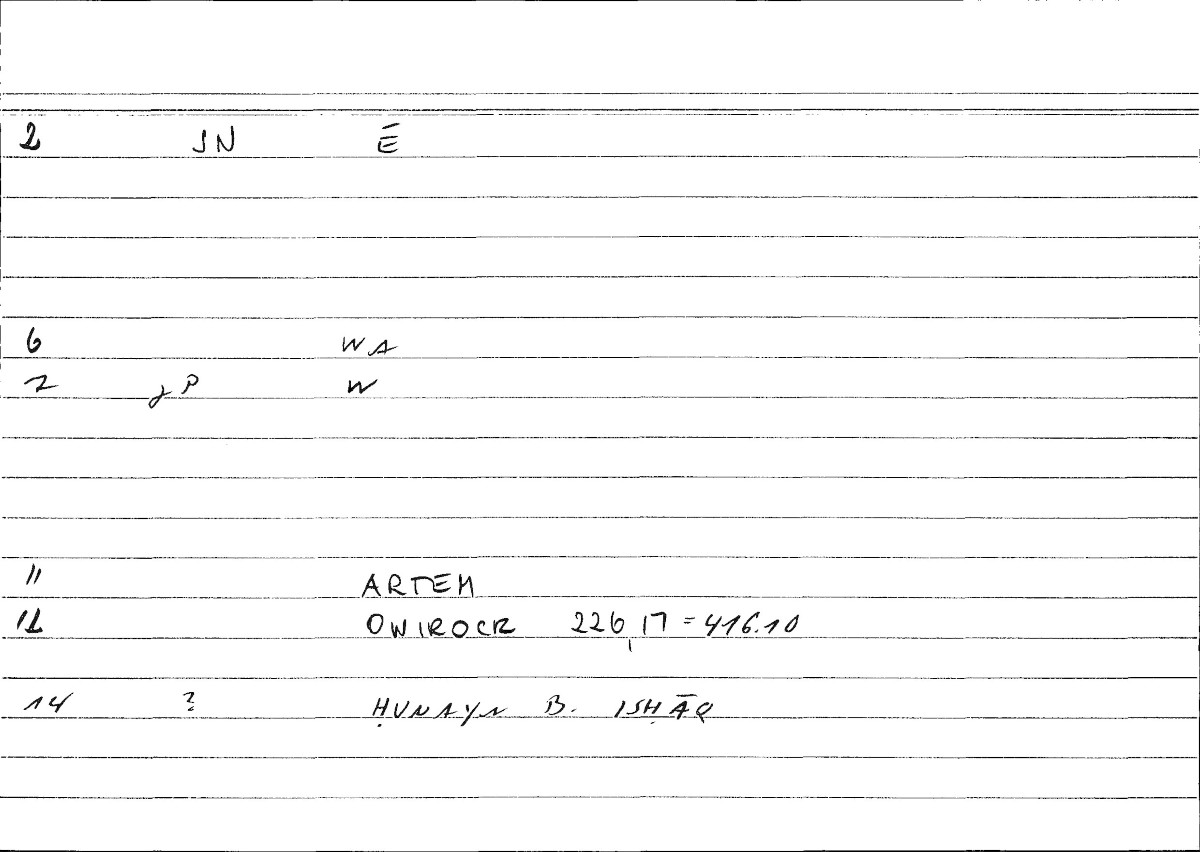 2 IN Ē
6 WA
7 jP W
11 ARTEM
12 ONIROCR 226,17 = 416.10
14 ? ḤUNAYN B. ISḤĀQ